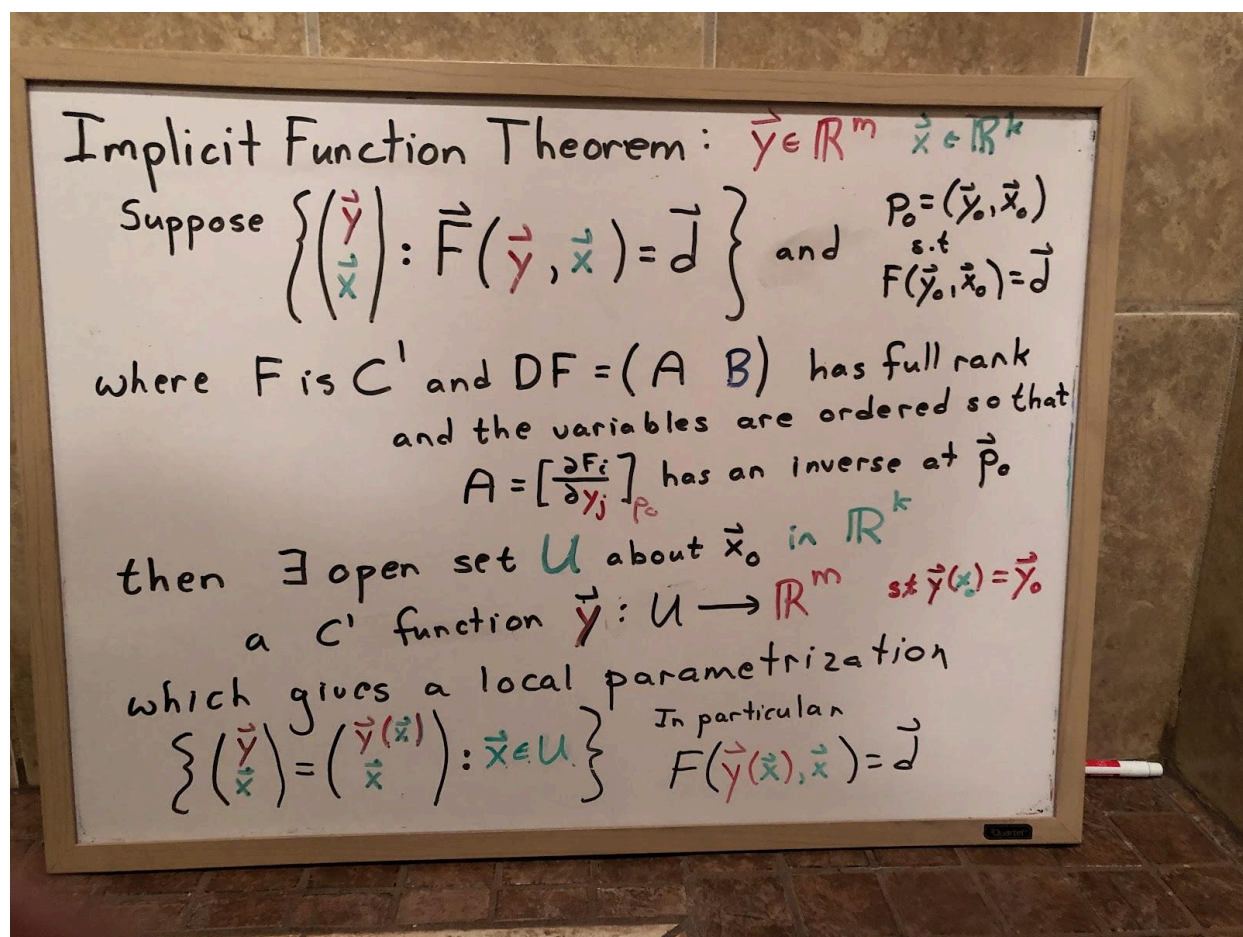 Implicit Function Theorem: y⃗ ∈ ℝᵐ x⃗ ∈ ℝᵏ
Suppose { (y⃗ x⃗) : F⃗(y⃗, x⃗) = d⃗ } and p₀ = (y⃗₀, x⃗₀) s.t F(y⃗₀, x⃗₀) = d⃗
where F is C' and DF = (A B) has full rank
and the variables are ordered so that
A = [∂Fᵢ/∂yⱼ]p₀ has an inverse at p⃗₀
then ∃ open set U about x⃗₀ in ℝᵏ
a C' function y⃗ : U → ℝᵐ st y⃗(x₀) = y⃗₀
which gives a local parametrization
{ (y⃗ x⃗) = (y⃗(x⃗) x⃗) : x⃗ ∈ U } In particular F(y⃗(x⃗), x⃗) = d⃗
Quartet